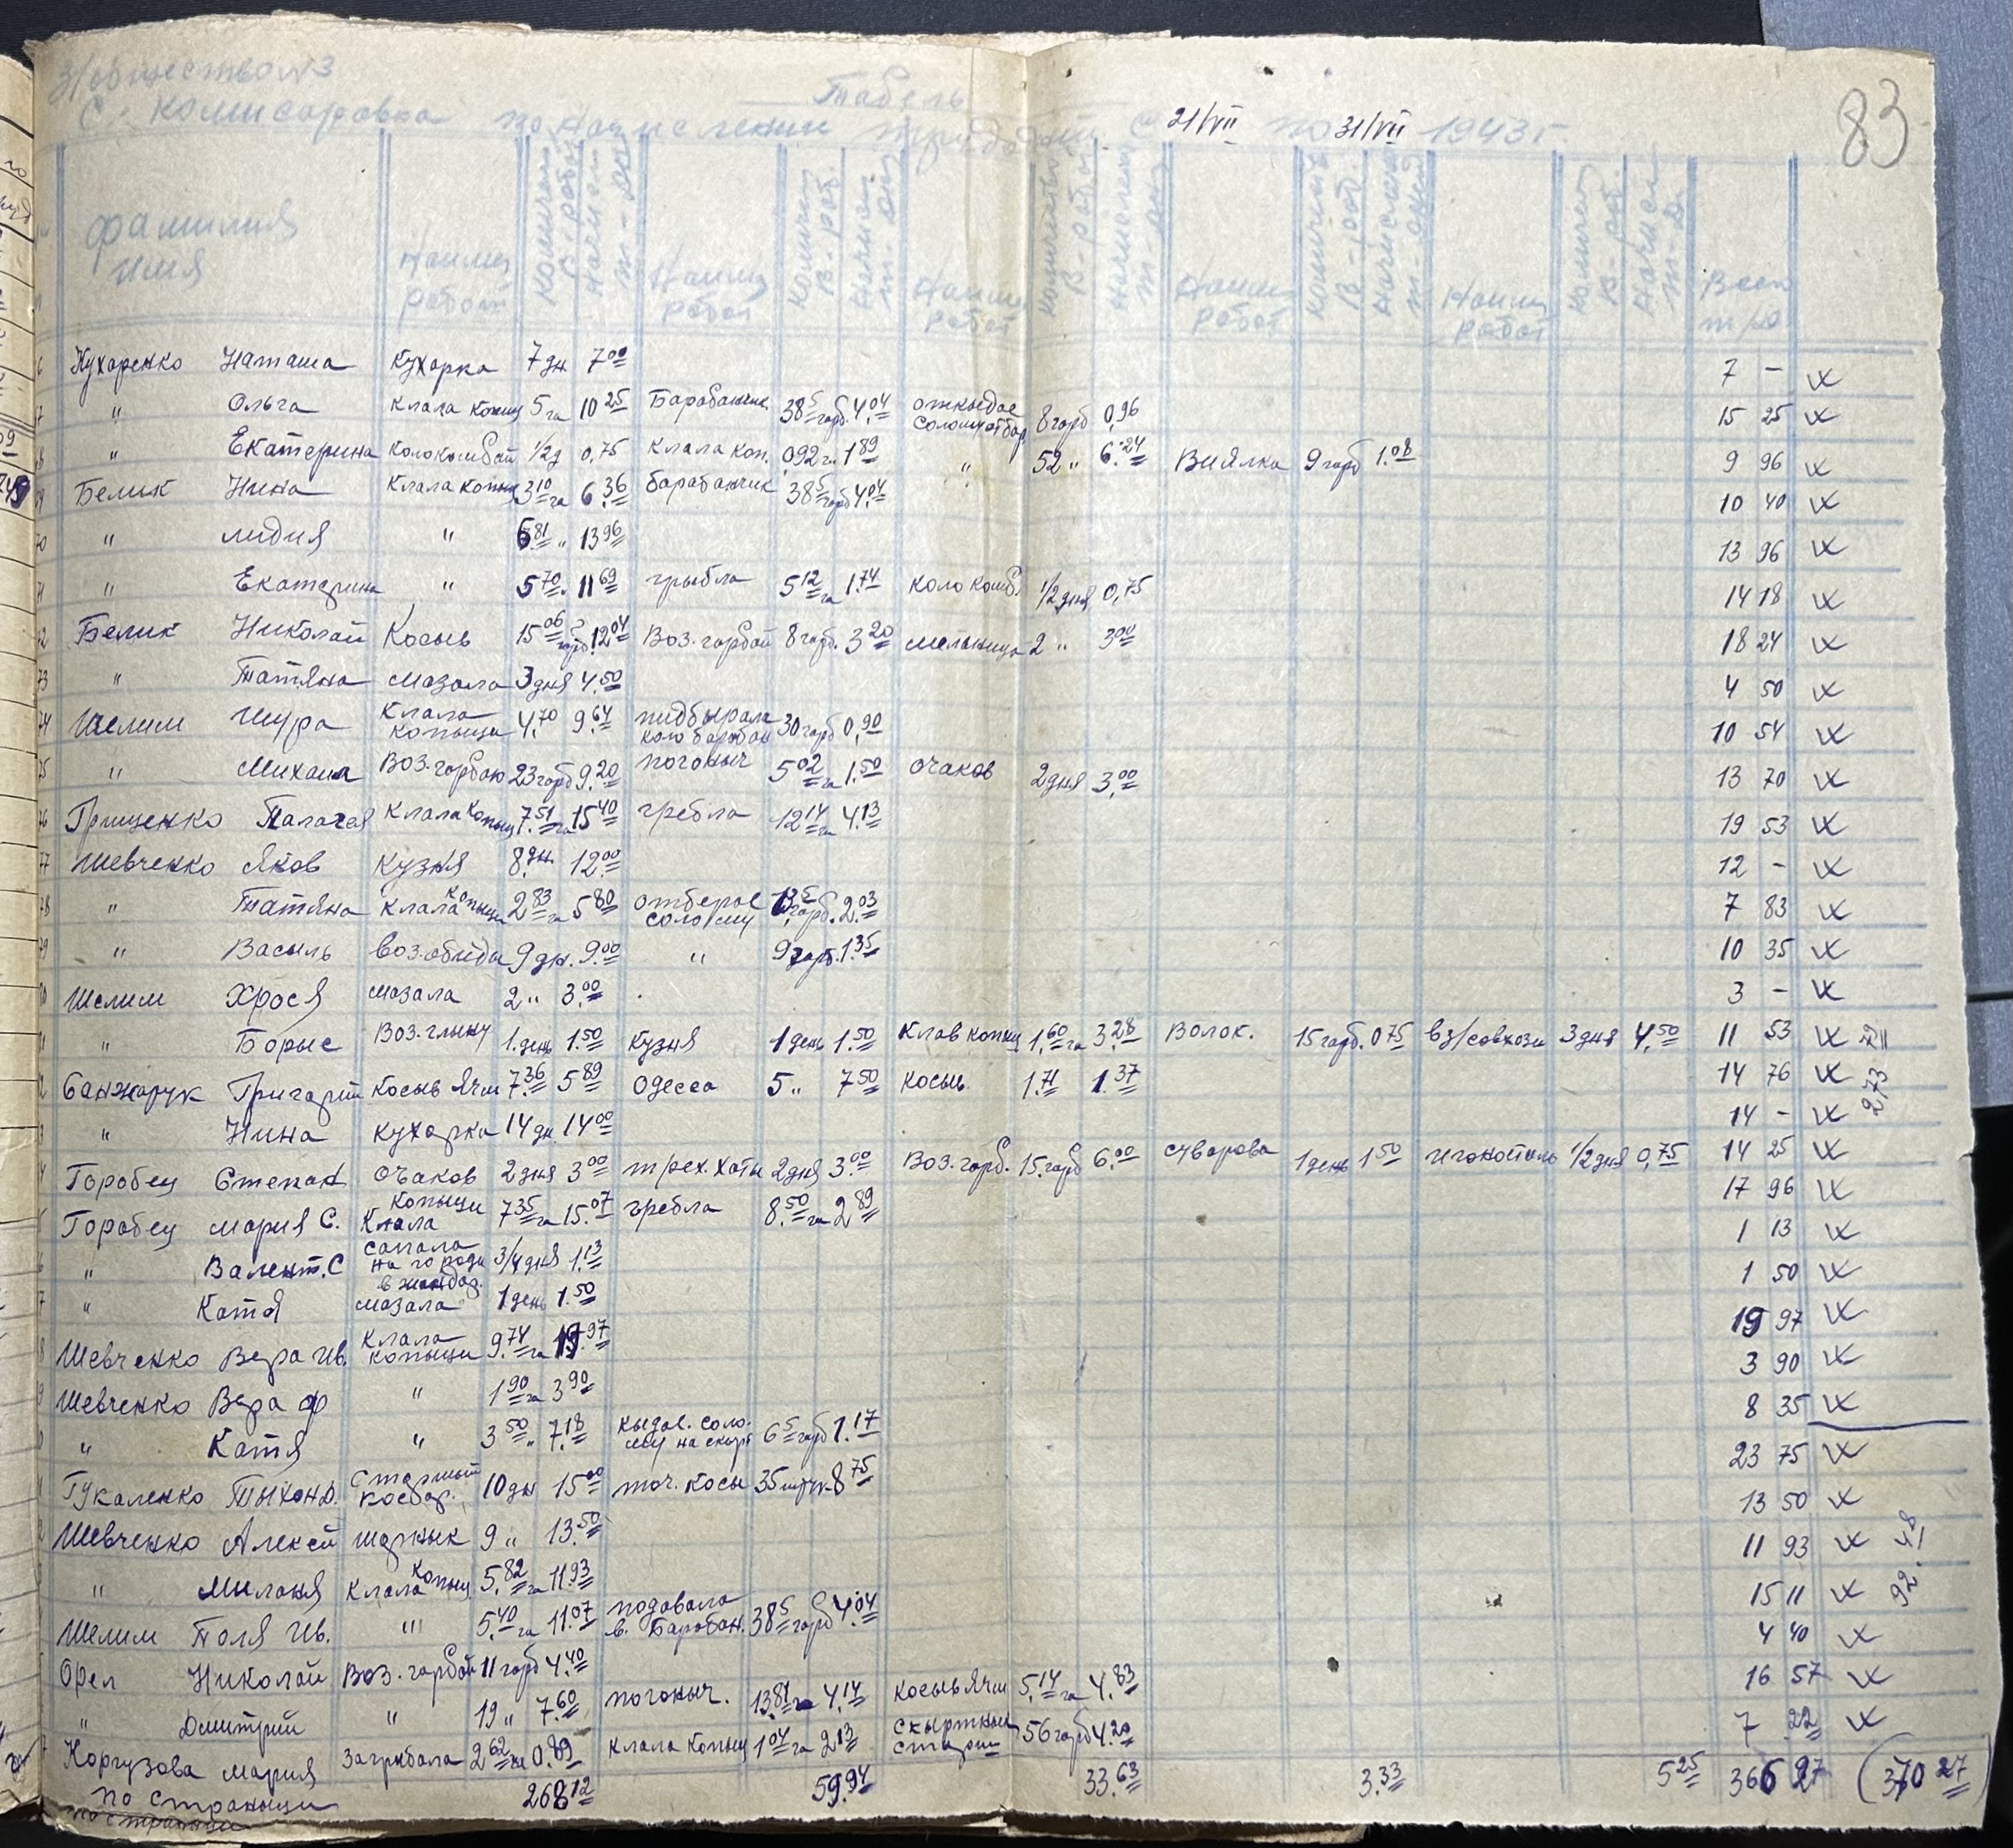 З/общество №3
Табель
С. Комисаровка по начислении трудодни с 21/VII по 31/VII 1943 г.
83
фамилия имя Наимен работ Количест В-работ Начислен т-дни Наимен работ Количест В-раб. Начисл т-дни Наимен работ Количество В-работ Начислен т-дни Наимен работ Количество В-раб. Начислен т-дней Наимен работ Количест В-раб. Начисл т-д Всего т/д
Кухаренко Наташа Кухарка 7 дн 7.00 7 –
" Ольга Клала копиц 5 га 10 25 Барабанчик 38 5 гарб. 4.04 откыдае солому от бар. 8 гарб 0,96 15 25
" Екатерина Коло комбай 1/2 д 0,75 Клала коп. 0,92 га 1 89 " 52 " 6.24 Виялка 9 гарб 1.08 9 96
Белик Нина Клала копиц 3 10 га 6.36 барабанчик 38 5 гарб 4.04 10 40
" Лидия " 6 81 " 13 96 13 96
" Екатерина " 5 70 " 11 69 грыбла 5 12 га 1.74 коло комб. 1/2 дня 0,75 14 18
Белик Николай Косыв 15 06 12 04 Воз. гарбой 8 гарб. 3 20 мельница 2 " 3 00 18 24
" Татяна мазала 3 дня 4.50 4 50
Шелим Шура Клала копыци 4,70 9 64 пидбырала коло барабан 30 гарб 0,90 10 54
" Михаил Воз. гарбою 23 гарб 9.20 погоныч 5 02 га 1.50 Очаков 2 дня 3.00 13 70
Грищенко Палагея Клала копиц 7.51 га 15 40 гребла 12 14 га 4.13 19 53
Шевченко Яков Кузня 8 дн. 12.00 12 –
" Татяна Клала копыци 2 83 га 5 80 отберае солому 13 5 гарб. 2.03 7 83
" Васыль воз. обиды 9 дн. 9.00 " 9 гарб. 1.35 10 35
Шелим Хрося мазала 2 " 3.00 3 –
" Борыс Воз. глыну 1 день 1.50 Кузня 1 день 1.50 Клав копиц 1,60 га 3.28 Волок. 15 гарб. 0 75 вз/совхози 3 дня 4,50 11 53
Санжарук Григорий Косыв Ячм 7.36 5 89 Одесса 5 " 7 50 косыв 1.71 1.37 14 76 2,73
" Нина кухарка 14 дн 14 00 14 –
Горобец Степан Очаков 2 дня 3 00 трех. хаты 2 дня 3.00 Воз. гарб. 15 гарб 6.00 Суворова 1 день 1 50 1/2 дня 0,75 14 25
Горобец Мария С. Копыци Клала 7 35 га 15.07 гребла 8.50 га 2 89 17 96
" Валент. С сапала на городи 3/4 дня 1.13 1 13
" Катя мазала 1 день 1.50 1 50
Шевченко Вера Ив. Клала копыци 9.74 га 19.97 19 97
Шевченко Вера Ф " 1 90 га 3 90 3 90
" Катя " 3 50 " 7.18 кыдае соло- му на скырт 6 5 гарб 1.17 8 35
Гукаленко Тыхон Д. Старший косбар. 10 дн 15 00 точ. косы 35 штук 8 75 23 75
Шевченко Алексей шорнык 9 " 13.50 13 50
" Миланя Клала копиц 5,82 га 11.93 11 93
Шелим Поля Ив. " 5,40 га 11.07 подавала в. Барабан. 38 5 гарб 4.04 15 11
Орел Николай Воз. гарбой 11 гарб 4.40 4 40
" Дмитрий " 19 " 7.60 погоныч. 13.81 га 4.14 Косыв Ячм 5,14 га 4.83 16 57
Коргузова Мария Загрибала 2 62 га 0.89 Клала копиц 1 04 га 2 13 скыртный старши 56 гарб 4.20 7 22
по страныци 268 12 59.94 33.63 3.33 5 25 366 27 (370 27)
по страныци